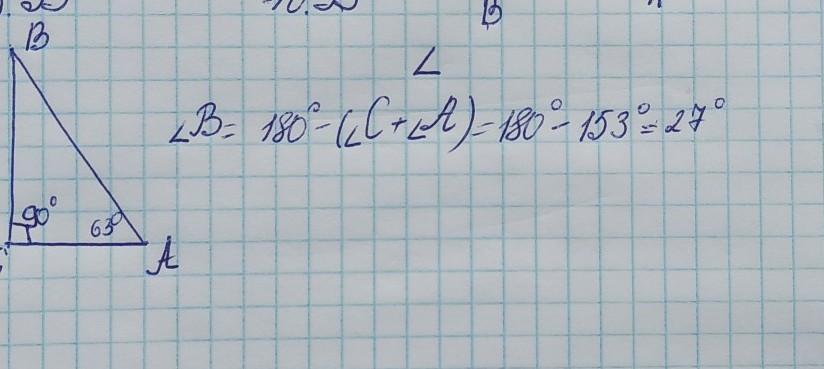 B
B
∠
∠B = 180° - (∠C + ∠A) = 180° - 153° = 27°
90°
63°
A